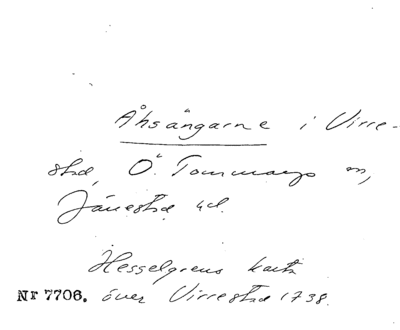 Åhsängarne i Virre-
stad, Ö. Tommarps sn,
Järrestad hd.
Hesselgrens karta
Nr 7706. över Virrestad 1738.